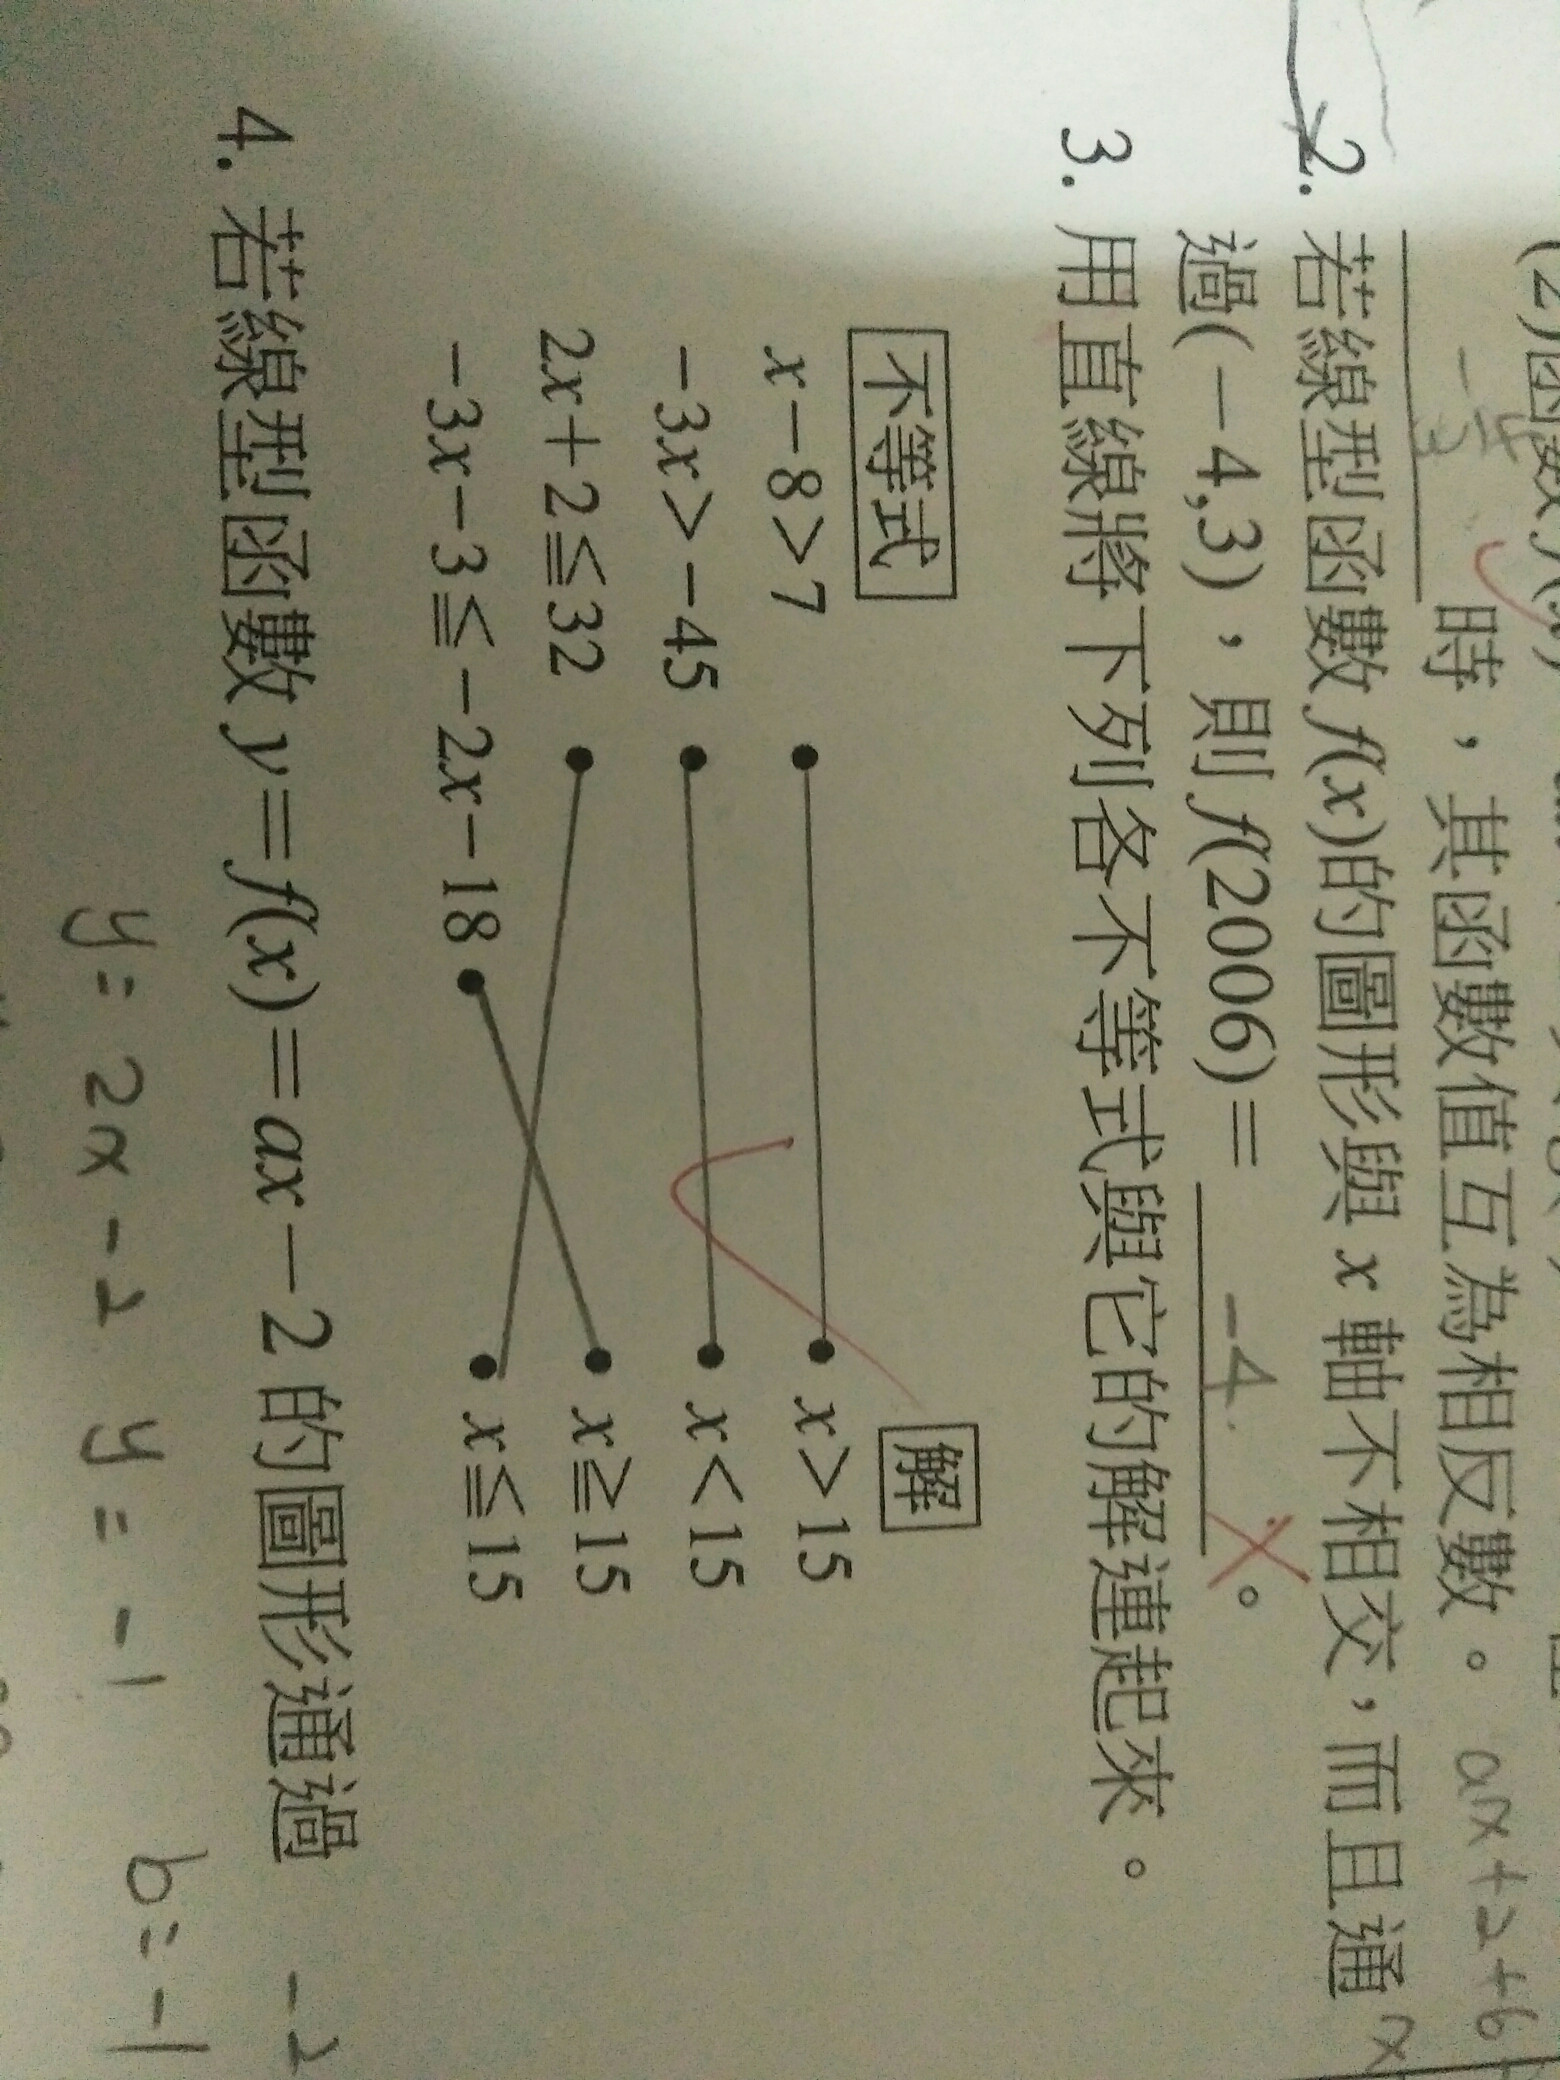 時，其函數值互為相反數。
2.若線型函數f(x)的圖形與x軸不相交，而且通
過(－4,3)，則f(2006)＝ -4
3.用直線將下列各不等式與它的解連起來。
不等式 解
x－8＞7 x＞15
－3x＞－45 x＜15
2x＋2≦32 x≧15
－3x－3≦－2x－18 x≦15
4.若線型函數y＝f(x)＝ax－2的圖形通過 -2
y=2x-2 y=-1 b=-1